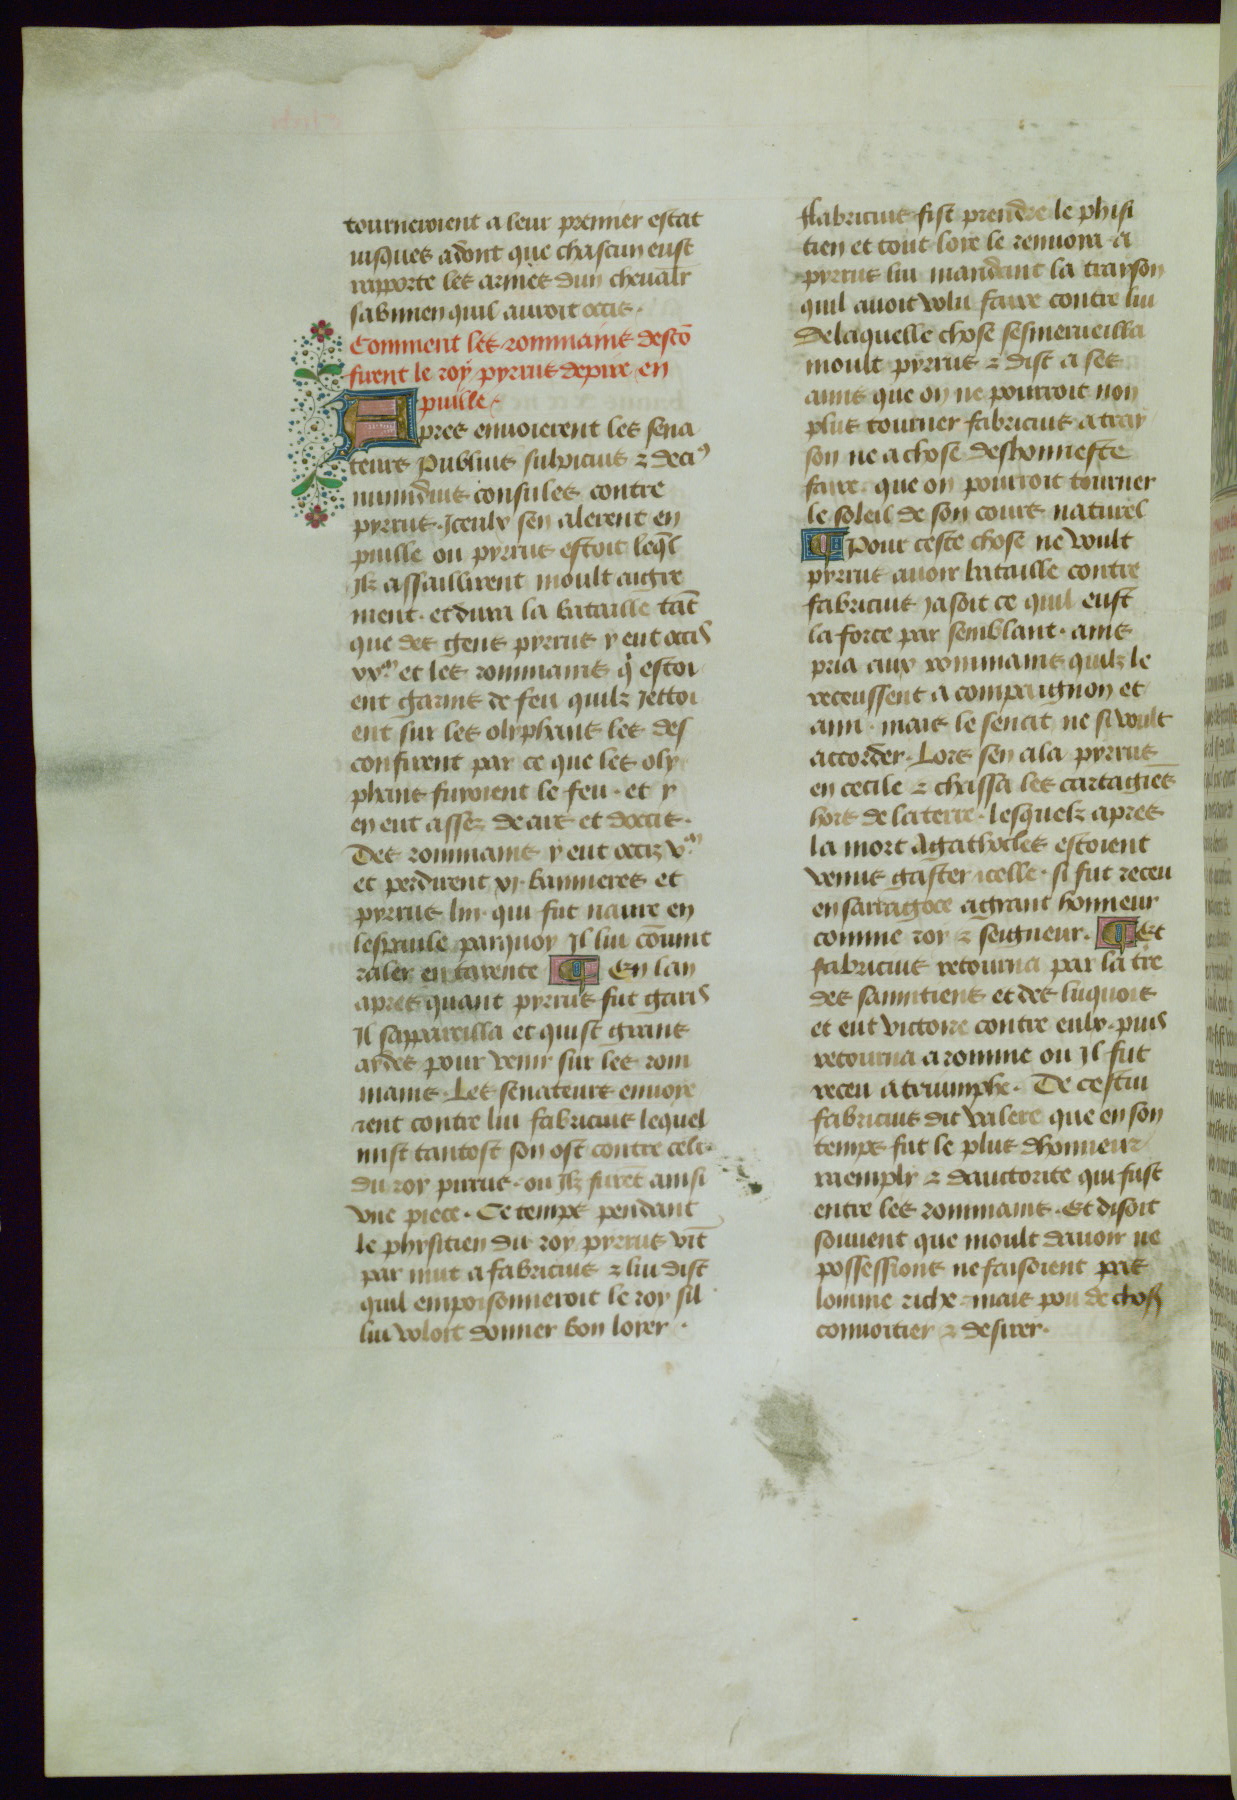 tourneroient a leur premier estat
iusques adont que chascun eust
rapporte les armes dun chevalr
sabinien quil auroit occis .
Comment les rommains descō
firent le roy pyrrus depire en
puille .
Apres enuoierent les sena
teurs Publius sulpicius ⁊ deci9
mundius consules contre
pyrrus . Iceulx sen alerent en
puille ou pyrrus estoit leq̄l
Ilz assaillirent moult aigre
ment . et dura la bataille tāt
que des gens pyrrus y eut occis
xxm et les rommains q̇ estoi
ent garnis de feu quilz iettoi
ent sur les olyphans les des
confirent par ce que les oly
phans fuyoient le feu . et y
en eut assez de ars et doccis .
Des rommains y eut occiz vm
et perdirent xi . bannieres et
pyrrus liii . qui fut naure en
lespaule parquoy Il lui cōuint
raler en tarente ¶ En lan
apres quant pyrrus fut garis
Il sappareilla et quist grans
aydes pour venir sur les rom
mains . Les senateurs enuoye
rent contre lui fabricius lequel
mist tantost son ost contre celi
du roy pirrus . ou Ilz furēt ainsi
vne piece . Ce temps pendant
le physicien du roy pyrrus vīt
par nuit a fabricius ⁊ lui dist
quil empoisonneroit le roy sil
lui voloit donner bon loyer .
Fabricius fist prendre le phisi
cien et tout loye le renuoya a
pyrrus lui mandant la trayson
quil auoit volu faire contre lui
De laquelle chose sesmerueilla
moult pyrrus ⁊ dist a ses
amis que on ne pourroit non
plus tourner fabricius a tray
son ne a chose deshonneste
faire . que on pourroit tourner
le soleil de son cours naturel
¶ Pour ceste chose ne voult
pyrrus auoir bataille contre
fabricius ia soit ce quil eust
la force par semblant . ains
pria aux rommains quilz le
receussent a compaignon et
ami . mais le senat ne si voult
accorder . Lors sen ala pyrrus
en cecile ⁊ chassa les cartagiēs
hors de la terre . lesquelz apres
la mort Agathocles estoient
venus gaster icelle . si fut receu
en sarragoce a grant honneur
comme roy ⁊ seigneur . ¶ Et
fabricius retourna par la t̄re
des samnitiens et des luquois
et eut victoire contre eulx . puis
retourna a romme ou Il fut
receu a triumphe . De cestui
fabricius dit valere que en son
temps fut le plus dhonneur
raemply ⁊ dauctorite qui fust
entre les rommains . Et disoit
souuent que moult dauoir ne
possessions ne faisoient pas
lomme riche . mais pou de choses
conuoitier ⁊ desirer .